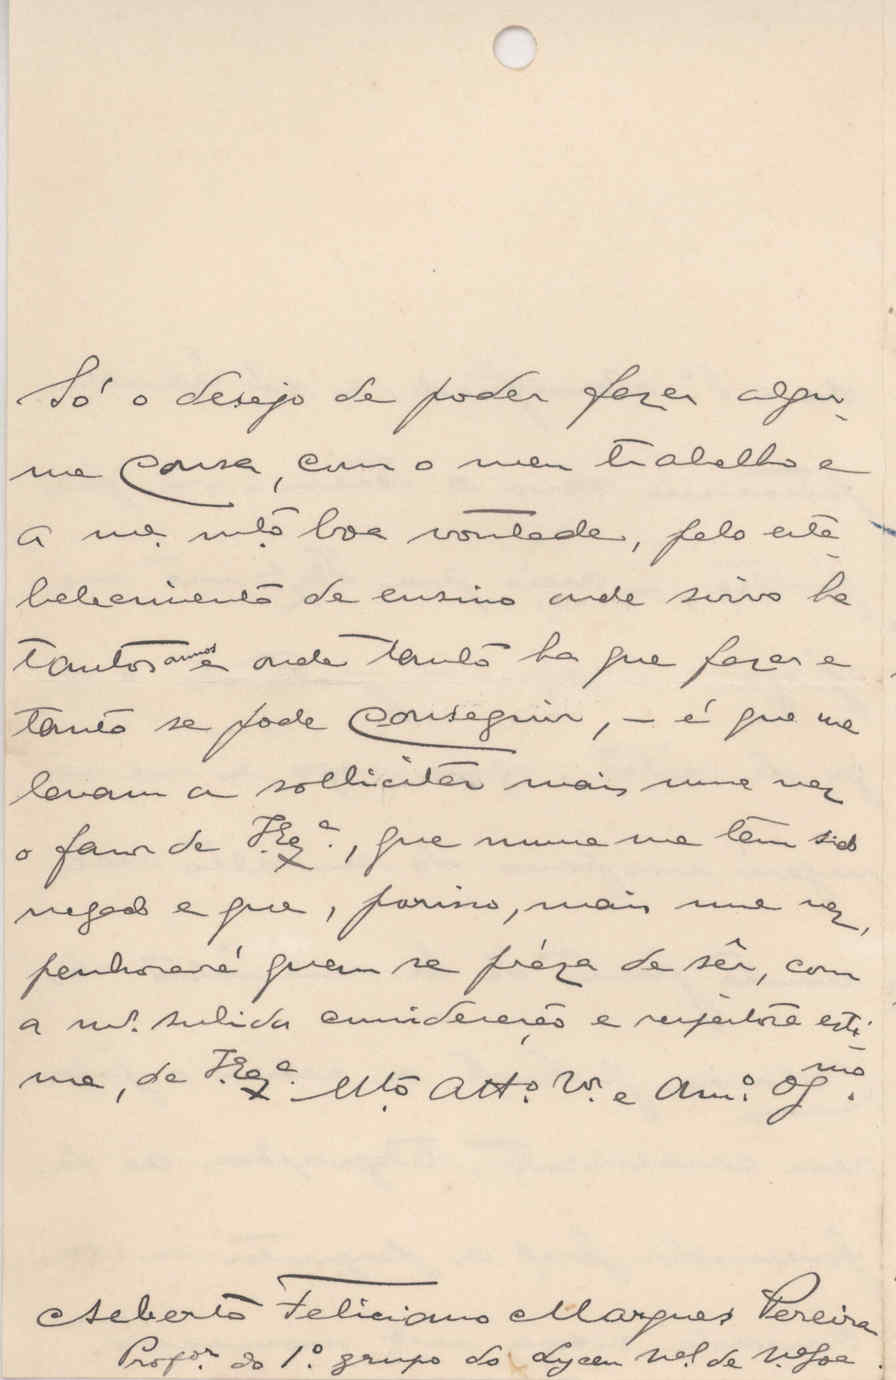 Só o desejo de poder fazer algu-
ma cousa, com o meu trabalho e
a ma. mtª boa vontade, pelo esta-
belecimento de ensino onde sirvo ha
tantos annos e onde tanto ha que fazer e
tanto se pode conseguir, — é que me
levam a sollicitar mais uma vez
o favor de V. Exª., que nunca me tem sido
negado e que, porisso, mais uma vez,
penhorará quem se préza de sêr, com
a mr. subida consideração e respeitosa esti-
ma, de V. Exª. Mtº Attº. Vor. e Amº. Obgmo.
Alberto Feliciano Marques Pereira
Profor. do 1º. grupo do Lyceu Nal. de